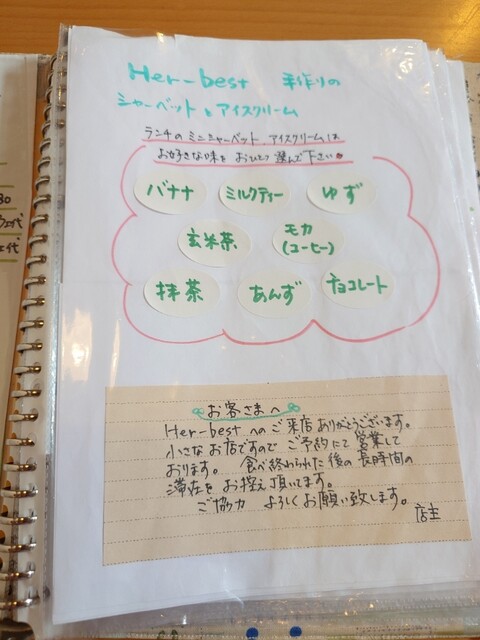 Her-best 手作りの
シャーベットとアイスクリーム
ランチのミニシャーベット、アイスクリームは
お好きな味をおひとつ選んで下さい。
バナナ
ミルクティー
ゆず
玄米茶
モカ
(コーヒー)
抹茶
あんず
チョコレート
お客さまへ
Her-best へのご来店ありがとうございます。
小さなお店ですので ご予約にて営業して
おります。 食べ終わられた後の長時間の
滞在をお控え頂いてます。
ご協力 よろしくお願い致します。
店主